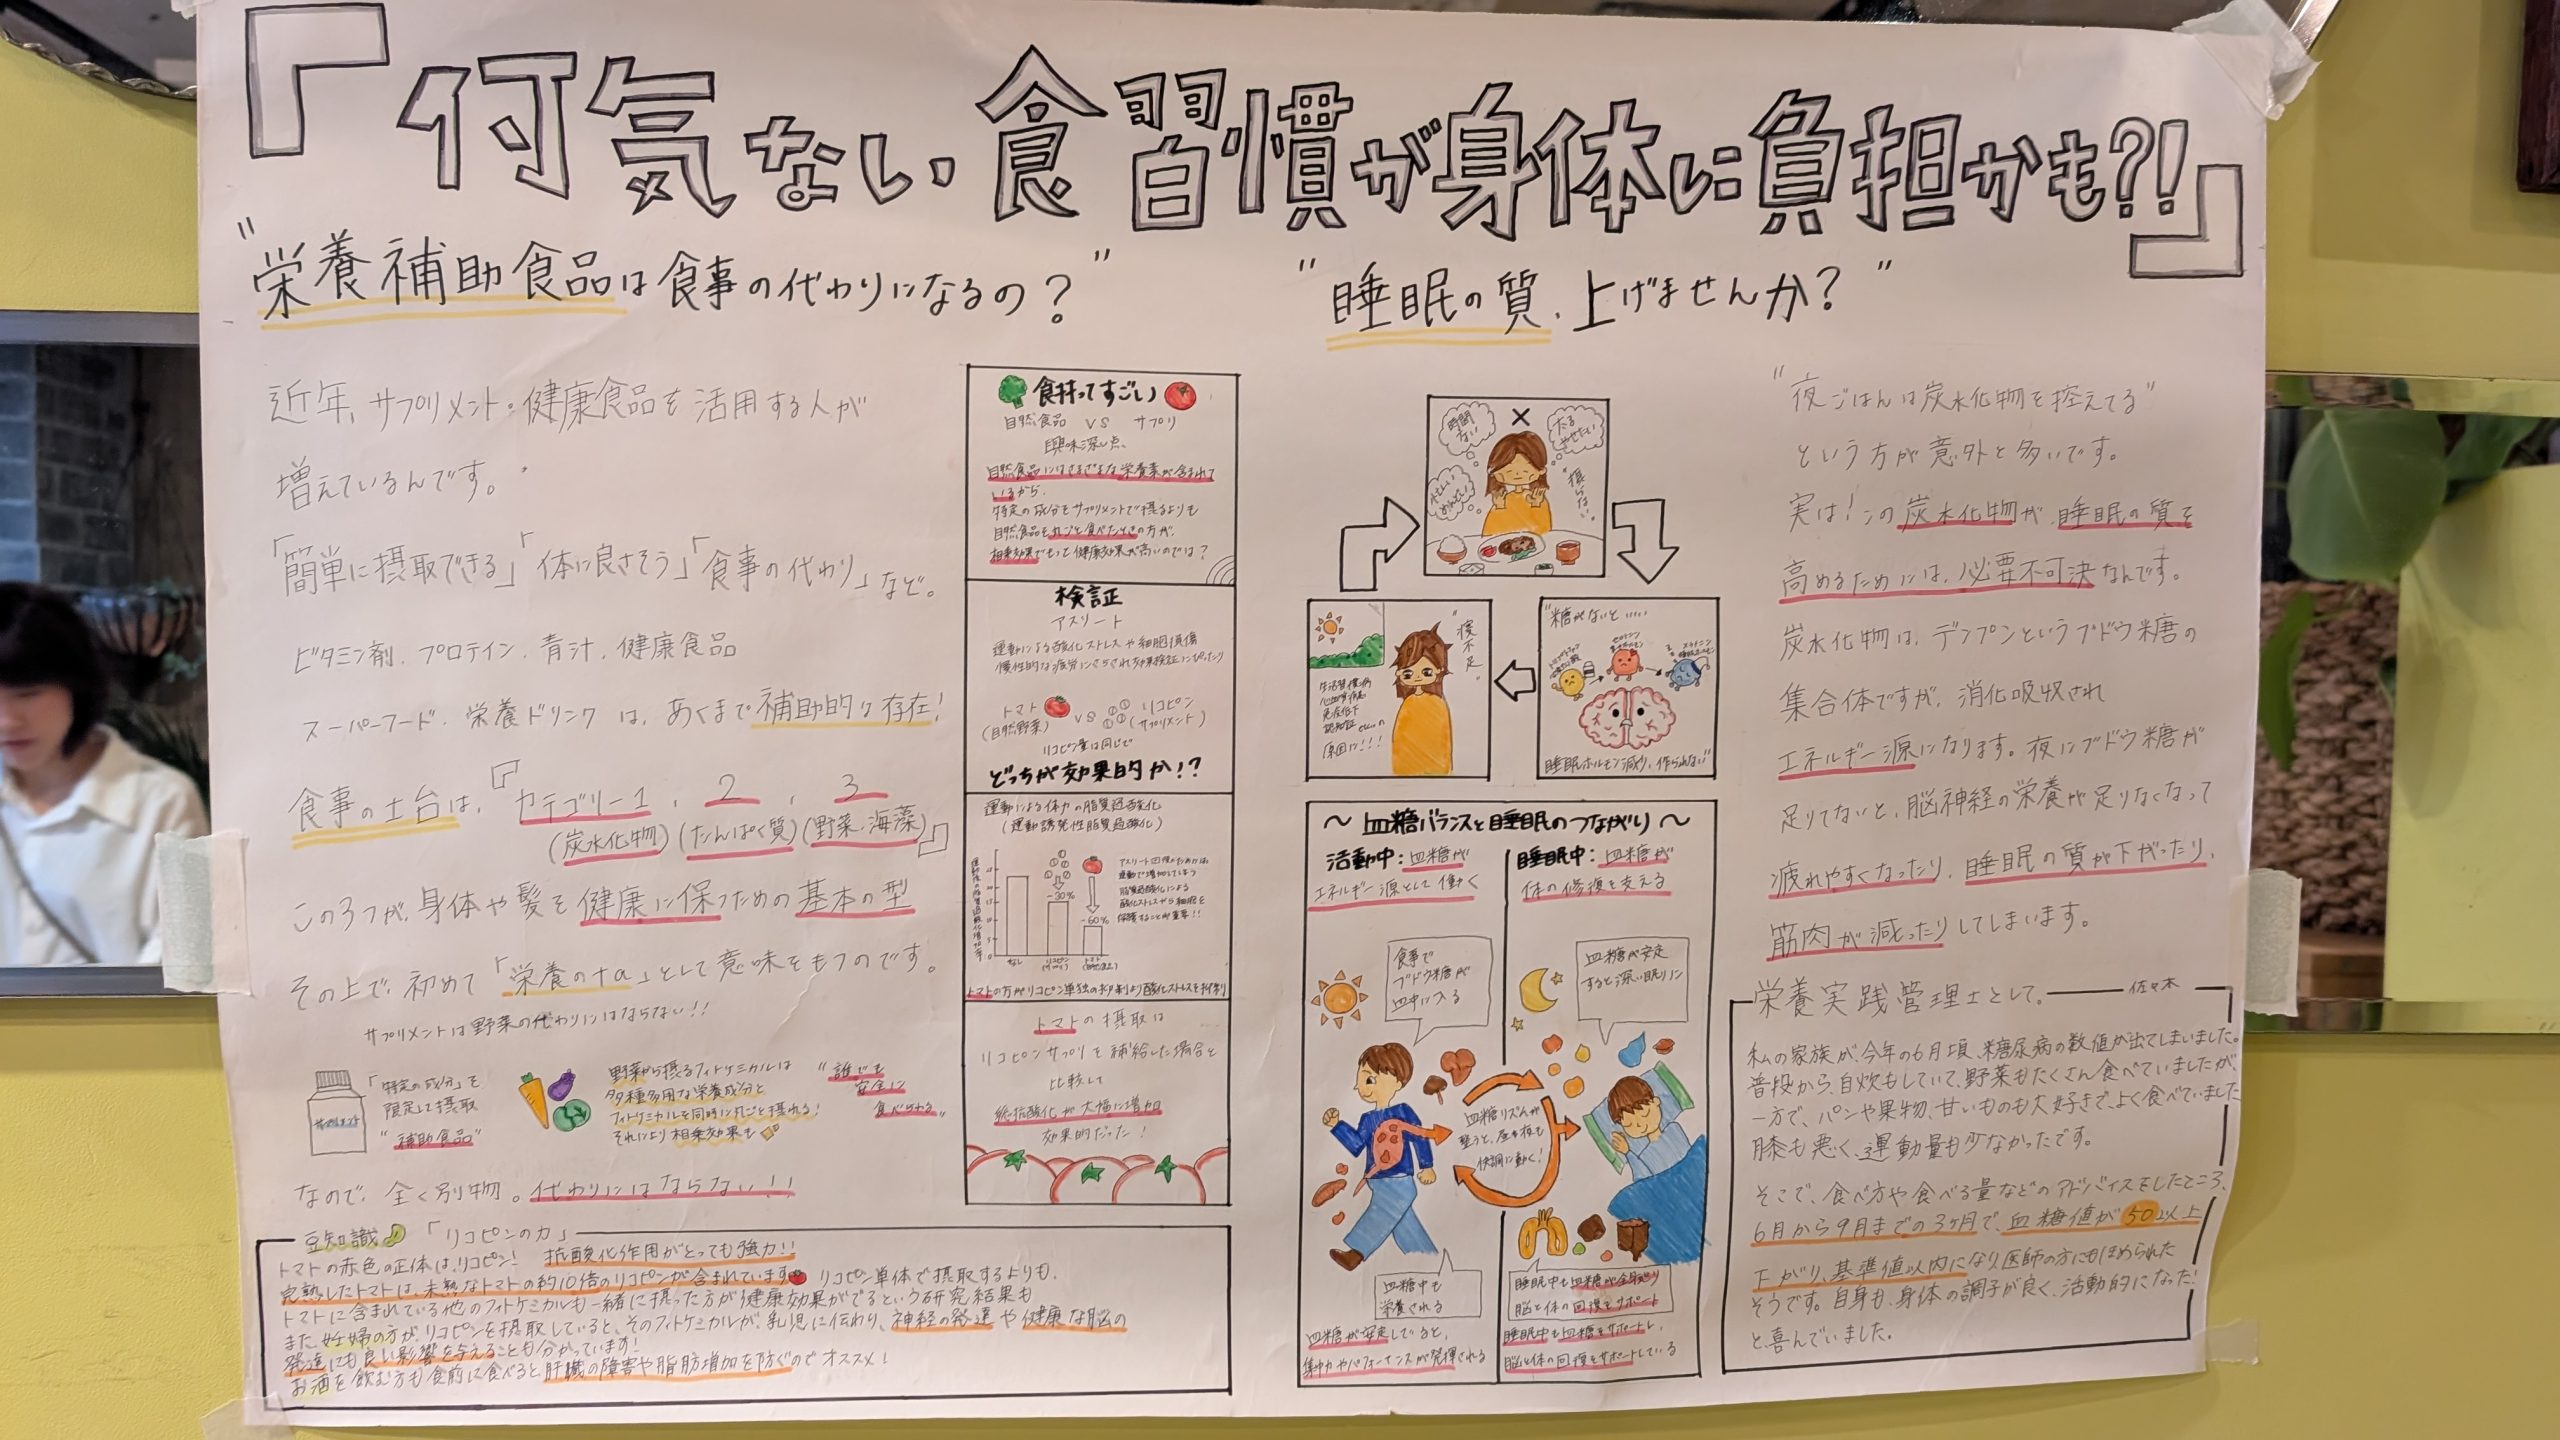 『何気ない食習慣が身体に負担かも?!』
"栄養補助食品は食事の代わりになるの？"
近年、サプリメント・健康食品を活用する人が
増えているんです。
「簡単に摂取できる」「体に良さそう」「食事の代わり」など。
ビタミン剤、プロテイン、青汁、健康食品
スーパーフード、栄養ドリンクは、あくまで補助的な存在!
食事の土台は、『カテゴリー1、2、3
(炭水化物)(たんぱく質)(野菜、海藻)』
この3つが、身体や髪を健康に保つための基本の型
その上で、初めて「栄養の+α」として意味をもつのです。
サプリメントは野菜の代わりにはならない!!
サプリメント
「特定の成分」を
限定して摂取
"補助食品"
野菜から摂るフィトケミカルは
多種多用な栄養成分と
フィトケミカルを同時に丸ごと摂れる!
それにより相乗効果も
"誰でも
安全に
食べられる"
なので、全く別物。代わりにはならない!!
豆知識 「リコピンの力」
トマトの赤色の正体は、リコピン! 抗酸化作用がとっても強力!!
完熟したトマトは、未熟なトマトの約10倍のリコピンが含まれています リコピン単体で摂取するよりも、
トマトに含まれている他のフィトケミカルも一緒に摂った方が健康効果がでるという研究結果も
また、妊婦の方が、リコピンを摂取していると、そのフィトケミカルが、乳児に伝わり、神経の発達や健康な脳の
発達にも良い影響を与えることも分かっています!
お酒を飲む方も食前に食べると、肝臓の障害や脂肪増加を防ぐのでオススメ!
食持ってすごい
自然食品 VS サプリ
興味深い点、
自然食品にはさまざまな栄養素が含まれて
いるから、
特定の成分をサプリメントで摂るよりも
自然食品を丸ごと食べたときの方が、
相乗効果でもって健康効果が高いのでは?
検証
アスリート
運動による酸化ストレスや細胞損傷
慢性的な疲労にさらされ効果検証にぴったり
トマト VS リコピン
(自然野菜) (サプリメント)
リコピン量は同じで
どっちが効果的か!?
運動による体力の脂質過酸化
(運動誘発性脂質過酸化)
-30%
-60%
なし
リコピン
トマト
アスリート
運動で増加してしまう
脂質過酸化による
酸化ストレスから細胞を
保護することが重要!!
トマトの方がリコピン単独の
酸化ストレスを抑制
トマトの摂取は
リコピンサプリを補給した場合と
比較して
総抗酸化が大幅に増加
効果的だった!
"睡眠の質、上げませんか？"
時間ない
太る やせたい
忙しい めんどい
"摂らない"
"糖がないと……
睡眠ホルモン減少、作られない"
"寝不足"
生活習慣病
心血管疾患
免疫低下
認知症 etc...の
原因に!!!
～血糖バランスと睡眠のつながり～
活動中：血糖が
エネルギー源として働く
睡眠中：血糖が
体の修復を支える
食事で
ブドウ糖が
血中に入る
血糖が安定
すると深い眠りに
血糖リズムが
整うと、昼も夜も
快調に動く!
血糖中も
栄養される
血糖が安定していると、
集中力やパフォーマンスが発揮される
睡眠中も血糖が全身を巡り
脳と体の回復をサポート
睡眠中も血糖をサポートし、
脳と体の回復をサポートしている
"夜ごはんは炭水化物を控えてる"
という方が意外と多いです。
実は!この炭水化物が、睡眠の質を
高めるためには、必要不可決なんです。
炭水化物は、デンプンというブドウ糖の
集合体ですが、消化吸収され
エネルギー源になります。夜にブドウ糖が
足りてないと、脳神経の栄養が足りなくなって
疲れやすくなったり、睡眠の質が下がったり、
筋肉が減ったりしてしまいます。
栄養実践管理士として。 佐々木
私の家族が、今年の6月頃、糖尿病の数値が出てしまいました。
普段から、自炊もしていて、野菜もたくさん食べていましたが、
一方で、パンや果物、甘いものも大好きで、よく食べていました
膝も悪く、運動量も少なかったです。
そこで、食べ方や食べる量などのアドバイスをしたところ、
6月から9月までの3ヶ月で、血糖値が50以上
下がり、基準値以内になり、医師の方にもほめられた
そうです。自身も、身体の調子が良く、活動的になった!
と喜んでいました。